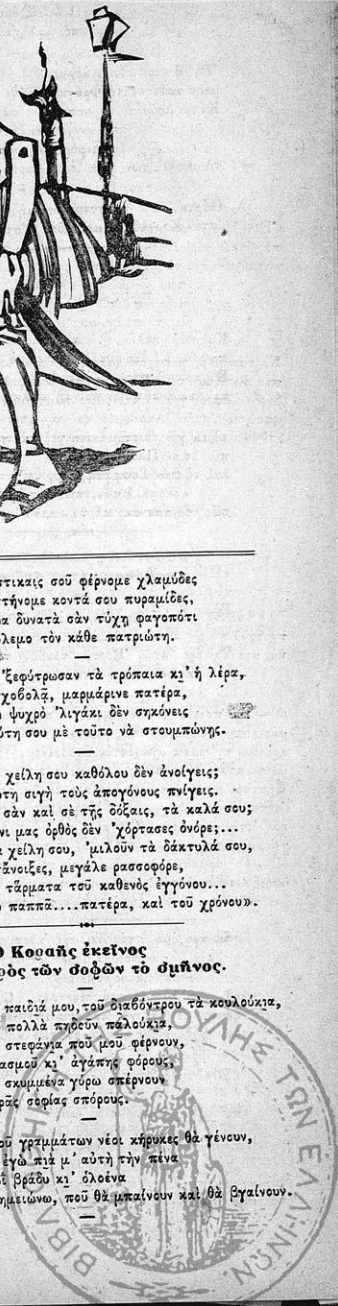 στικαις σοῦ φέρνομε χλαμύδες
τήνομε κοντά σου πυραμίδες,
α δυνατὰ σὰν τύχῃ φαγοπότι
λεμο τὸν κάθε πατριώτη.
—
'ξεφύτρωσαν τὰ τρόπαια κι' ἡ λέρα,
χοβολᾷ, μαρμάρινε πατέρα,
ψυχρὸ 'λιγάκι δὲν σηκόνεις
ύτη σου μὲ τοῦτο νὰ στουμπώνῃς.
—
χείλη σου καθόλου δὲν ἀνοίγεις;
τη σιγὴ τοὺς ἀπογόνους πνίγεις.
σὰν καὶ σὲ τῇς δόξαις, τὰ καλά σου;
νι μας ὀρθὸς δὲν 'χόρτασες ὀνόρε;...
χείλη σου, 'μιλοῦν τὰ δάκτυλά σου,
ἄνοιξες, μεγάλε ρασσοφόρε,
τἄρματα τοῦ καθενὸς ἐγγόνου...
παππᾶ....πατέρα, καὶ τοῦ χρόνου».
Ὁ Κοραῆς ἐκεῖνος
ρὸς τῶν σοφῶν τὸ σμῆνος.
—
παιδιά μου, τοῦ διαβόντρου τὰ κουλούκια,
πολλὰ πηδεῦν παλούκια,
στεφάνια ποῦ μοῦ φέρνουν,
ασμοῦ κι' ἀγάπης φόρους,
σκυμμένα γύρω σπέρνουν
ρᾶς σοφίας σπόρους.
—
οῦ γραμμάτων νέοι κήρυκες θὰ γένουν,
ἐγὼ πιὰ μ' αὐτὴ τὴν πένα
βράδυ κι' ὁλοένα
ημειώνω, ποῦ θὰ μπαίνουν καὶ θὰ βγαίνουν.
—
ΒΙΒΛΙΟΘΗΚΗ ΤΗΣ ΒΟΥΛΗΣ ΤΩΝ ΕΛΛΗΝΩΝ